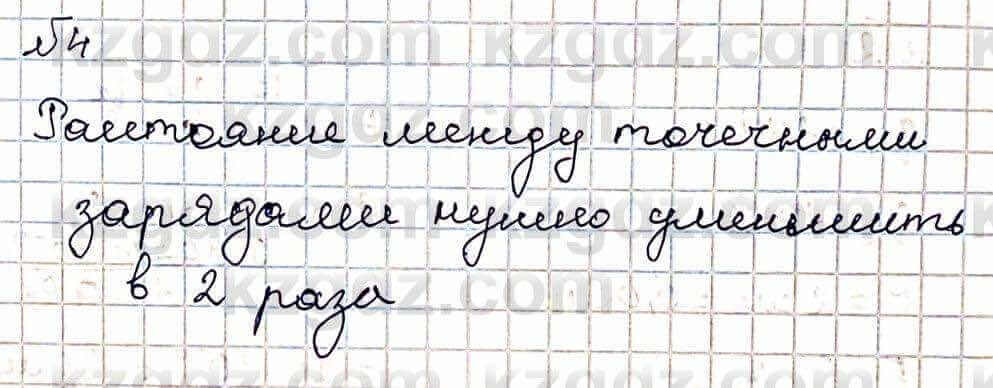 №4
Расстояние между точечными
зарядами нужно уменьшить
в 2 раза
kzgdz.com